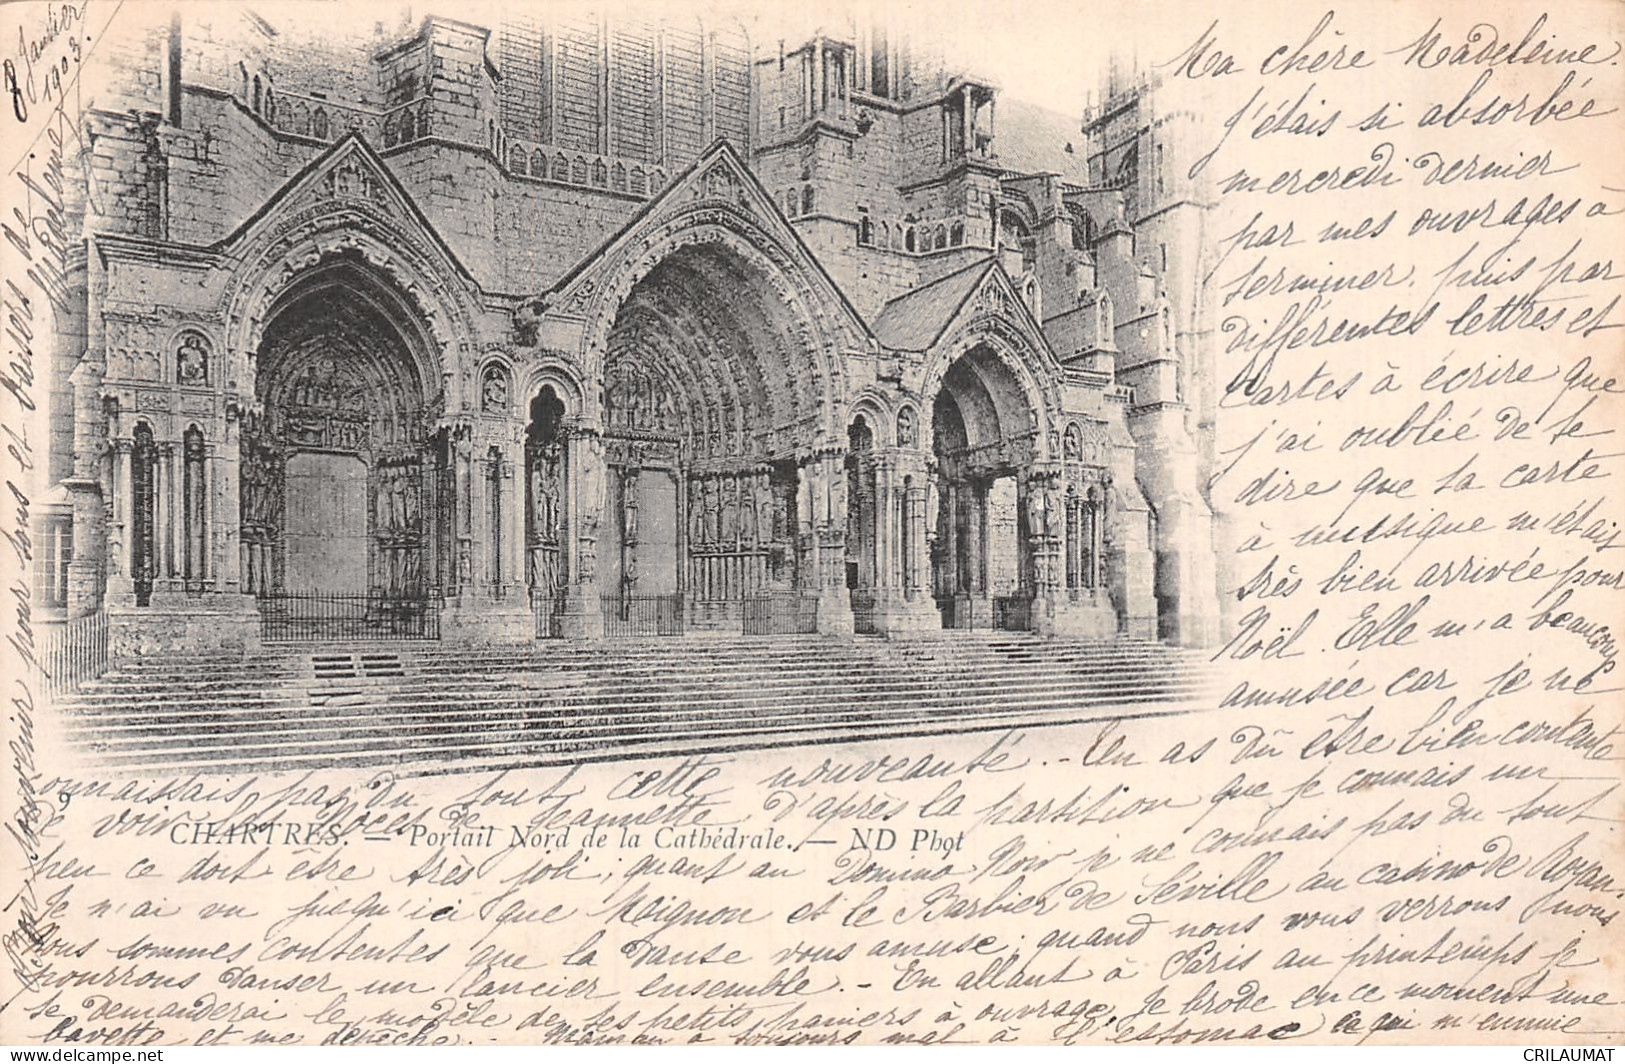 8 Janvier
1903.
Ma chère Madeleine.
J'étais si absorbée
mercredi dernier
par mes ouvrages à
terminer, puis par
différentes lettres et
cartes à écrire que
j'ai oublié de te
dire que ta carte
à musique m'était
très bien arrivée pour
Noël. Elle m'a beaucoup
amusée car je ne
connaissais pas du tout cette nouveauté. - Tu as dû être bien contente
de voir les Noces de Jeannette, d'après la partition que je connais un
peu ce doit être très joli; quant au Domino Noir je ne connais pas du tout.
Je n'ai vu jusqu'ici que Mignon et le Barbier de Séville au casino de Royan.
Nous sommes contentes que la danse vous amuse; quand nous vous verrons nous
pourrons danser un lancier ensemble. - En allant à Paris au printemps je
te demanderai le modèle de tes petits paniers à ouvrage. Je brode en ce moment une
bavette et me dépêche. - Maman a toujours mal à l'estomac ce qui m'ennuie
Bon souvenir pour tous et baisers de
Madeleine
9
CHARTRES. — Portail Nord de la Cathédrale. — ND Phot
CRILAUMAT